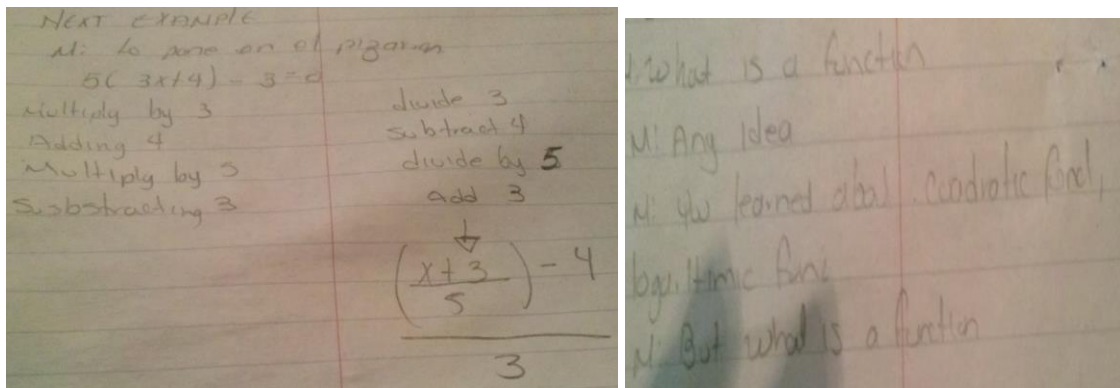 NEXT EXAMPLE
M: Lo pone en el pizarron
5( 3x+4) - 3 =
Multiply by 3
Adding 4
Multiply by 5
Susbstracting 3
divide 3
subtract 4
divide by 5
add 3
(x+3 / 5) - 4
3
What is a function
M: Any Idea
M: you learned about cuadratic func,
logaritmic func
M: But what is a function